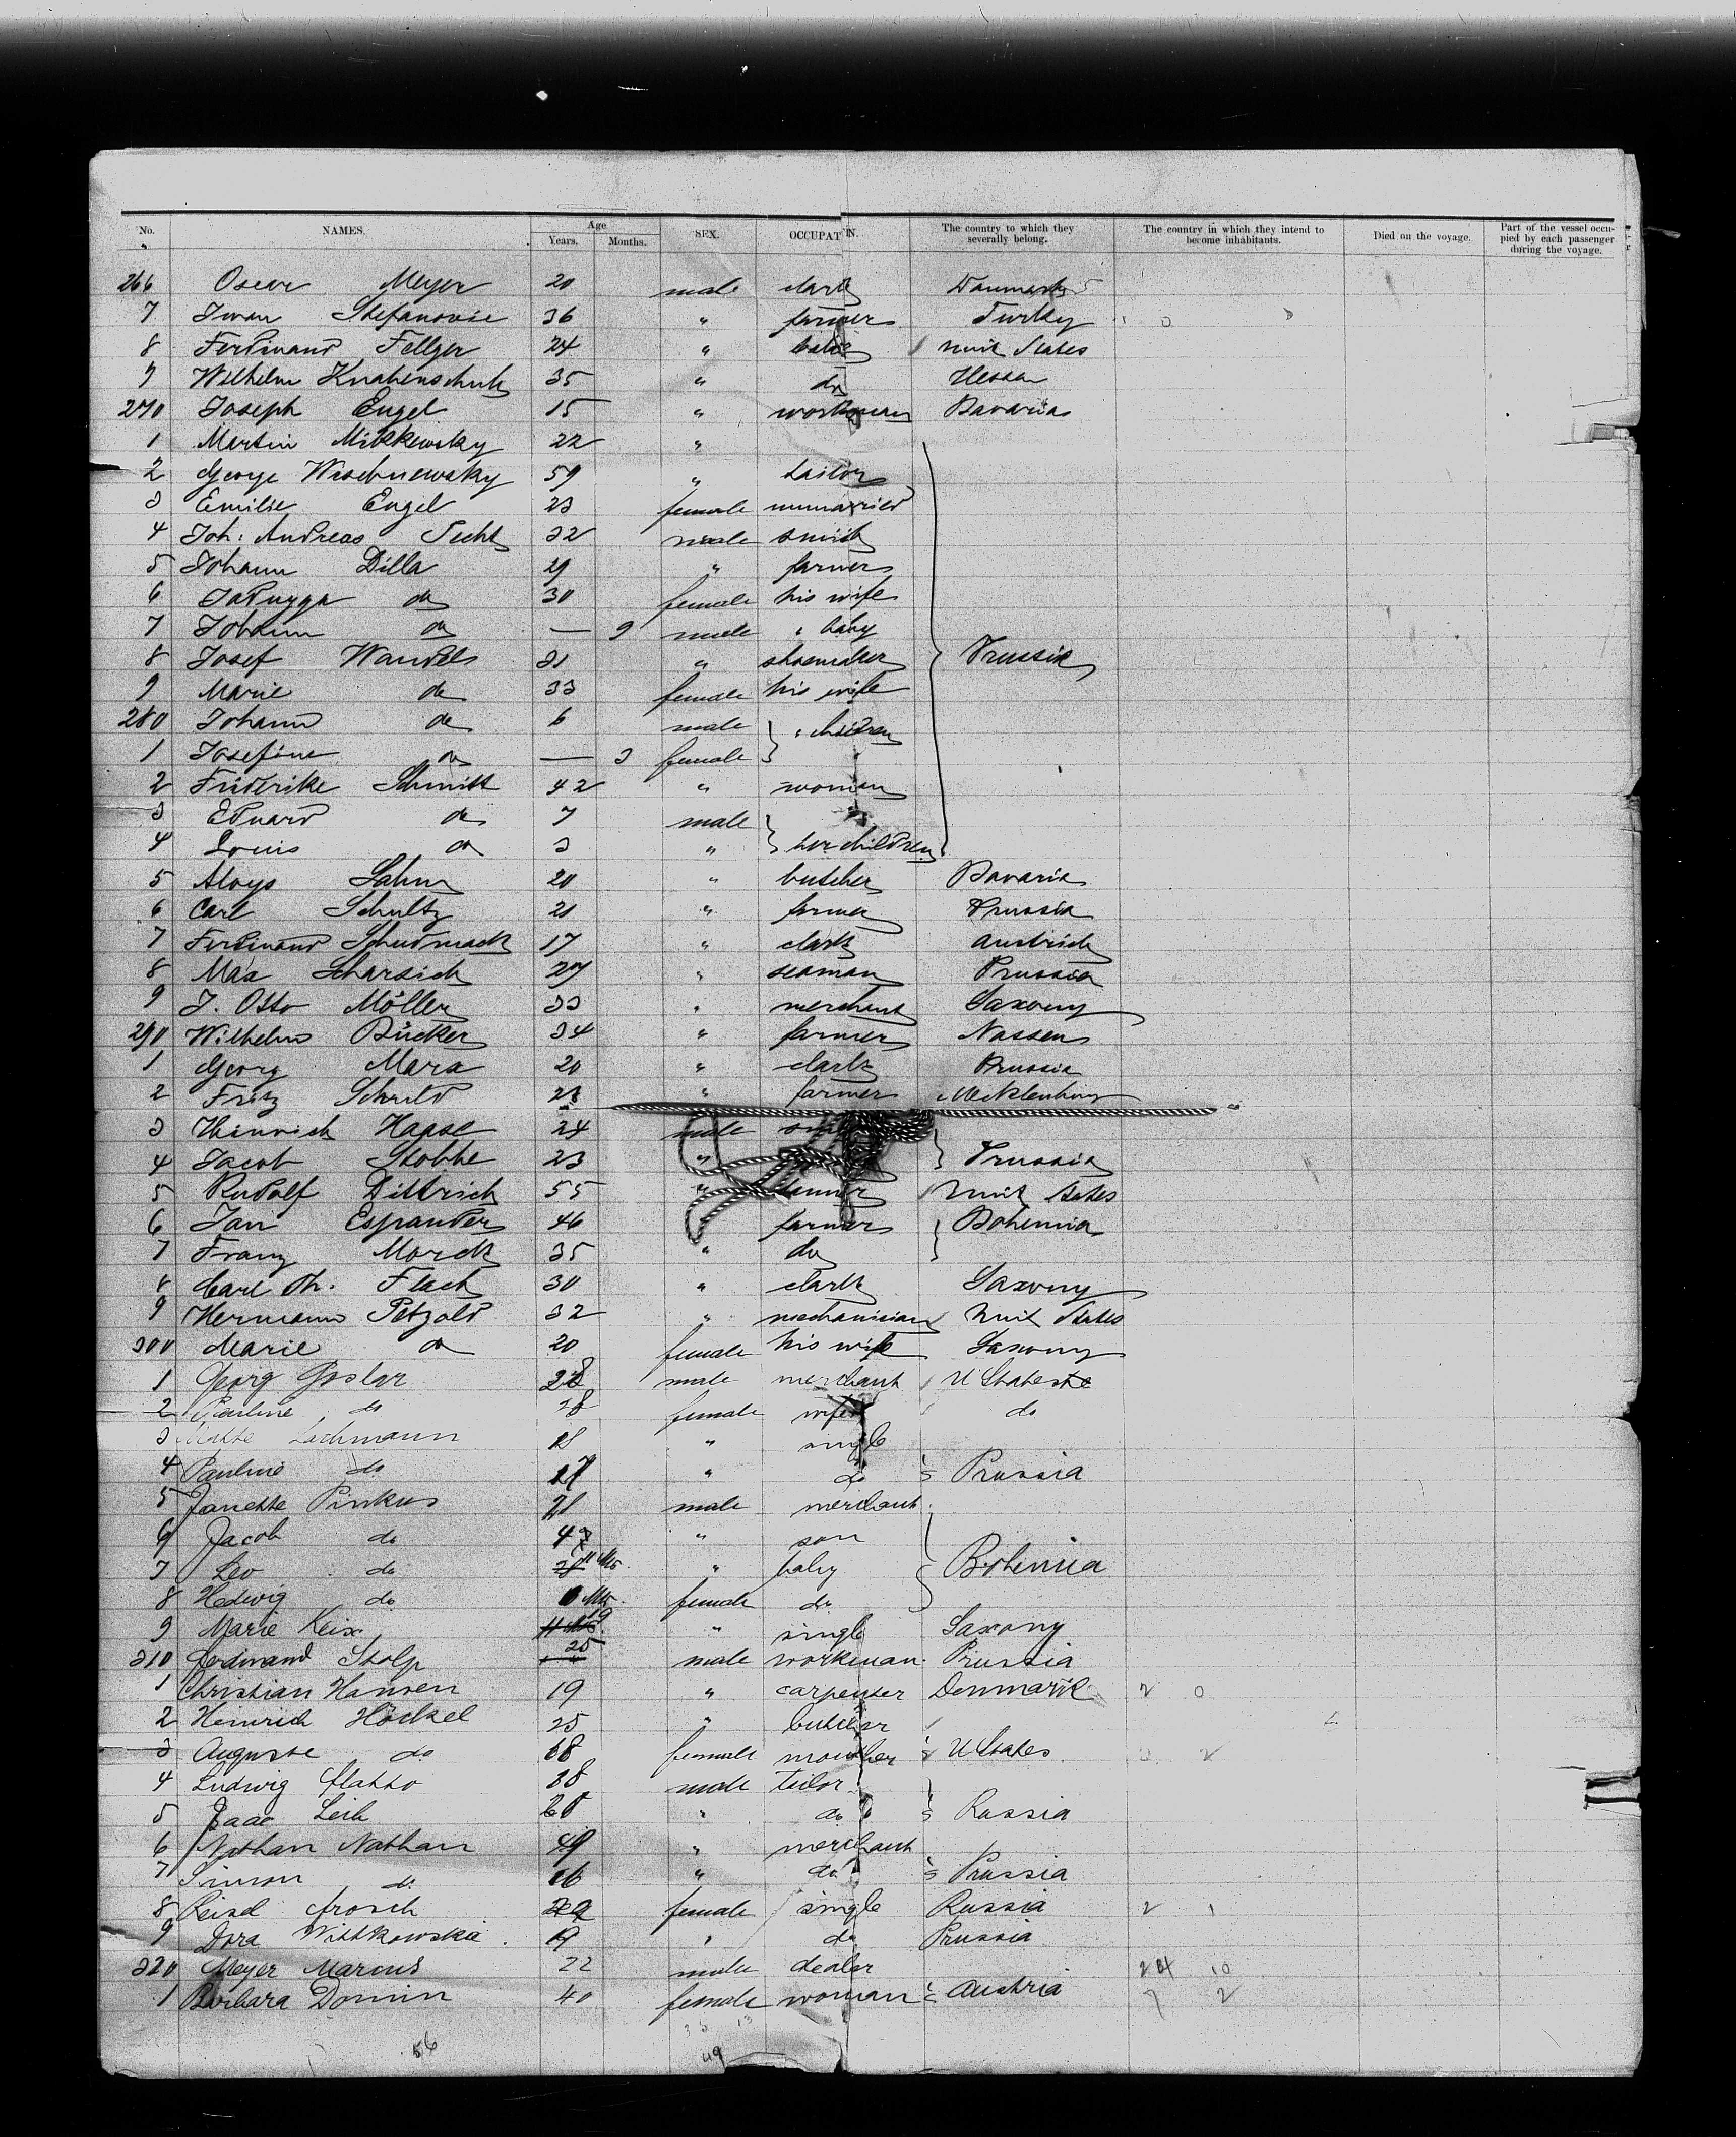 No. NAMES. Age Years. Months. SEX. OCCUPATIN. The country to which they severally belong. The country in which they intend to become inhabitants. Died on the voyage. Part of the vessel occupied by each passenger during the voyage.
266 Oscar Meyer 20 male clark Danmark
7 Iwan Stefanovic 36 " farmer Turkey
8 Ferdinand Fellger 24 " Unit States
9 Wilhelm Knabenschuh 35 " do Hessen
270 Joseph Engel 15 " workman Bavaria
1 Martin Mikkewsky 22 "
2 George Wischnewsky 59 " tailor
3 Emilie Engel 23 female unmaried
4 Joh. Andreas 32 male smith
5 Johann Dilla 29 " farmer
6 do 30 female his wife
7 Johann do — 9 male " baby
8 Josef Wandels 31 " shoemaker Prussia
9 Marie do 33 female his wife
280 Johann do 6 male " children
1 Josefine do — 3 female
2 Friderike Schmitt 42 " woman
3 Eduard do 7 male
4 Louis do 3 " her children
5 Aloys Lahm 20 " butcher Bavaria
6 Carl Schultz 21 " farmer Prussia
7 Ferdinand Schudmack 17 " clark Austrich
8 Max Scharsich 27 " seaman Prussia
9 J. Otto Möller 33 " merchant Saxony
290 Wilhelm Bücker 34 " farmer Nassen
1 Georg Marx 20 " clark Prussia
2 Fritz Schuld 23 " farmer Mecklenburg
3 Heinrich Haase 24 male
4 Jacob Stobbe 23 " Prussia
5 Rudolf Dittrich 55 " Unit States
6 Jan Espander 46 " farmer Bohemia
7 Franz Marck 35 " do
8 Carl Th. Flach 30 " clark Saxony
9 Hermann Petzold 32 " mechanician Unit States
300 Marie do 20 female his wife Saxony
1 Georg Goslar 28 male merchant U States
2 Pauline do 28 female wife do
3 Lachmann 18 " single
4 Pauline do 17 " do Prussia
5 Janette Pinkus 21 male merchant
6 Jacob do 4 " son
7 Leo do 11 Mts. " baby Bohemia
8 Hedwig do Mts. female do
9 Marie Keix 19 " single Saxony
310 Ferdinand Stolp 25 male workman Prussia
1 Christian Hansen 19 " carpenter Denmark 2 0
2 Heinrich Höckel 25 " butcher
3 Auguste do 18 female mouther U States 2
4 Ludwig 38 male tailor
5 Isaac Leib " do Russia
6 Nathan Nathan 49 " merchant
7 Simon do 16 " do Prussia
8 Reisel 29 female single Russia 2 1
9 Dora Wittkowska 19 " do Prussia
320 Meyer Marcus 22 male dealer 24 10
1 Barbara Domin 40 female woman Austria 7 2
56 49